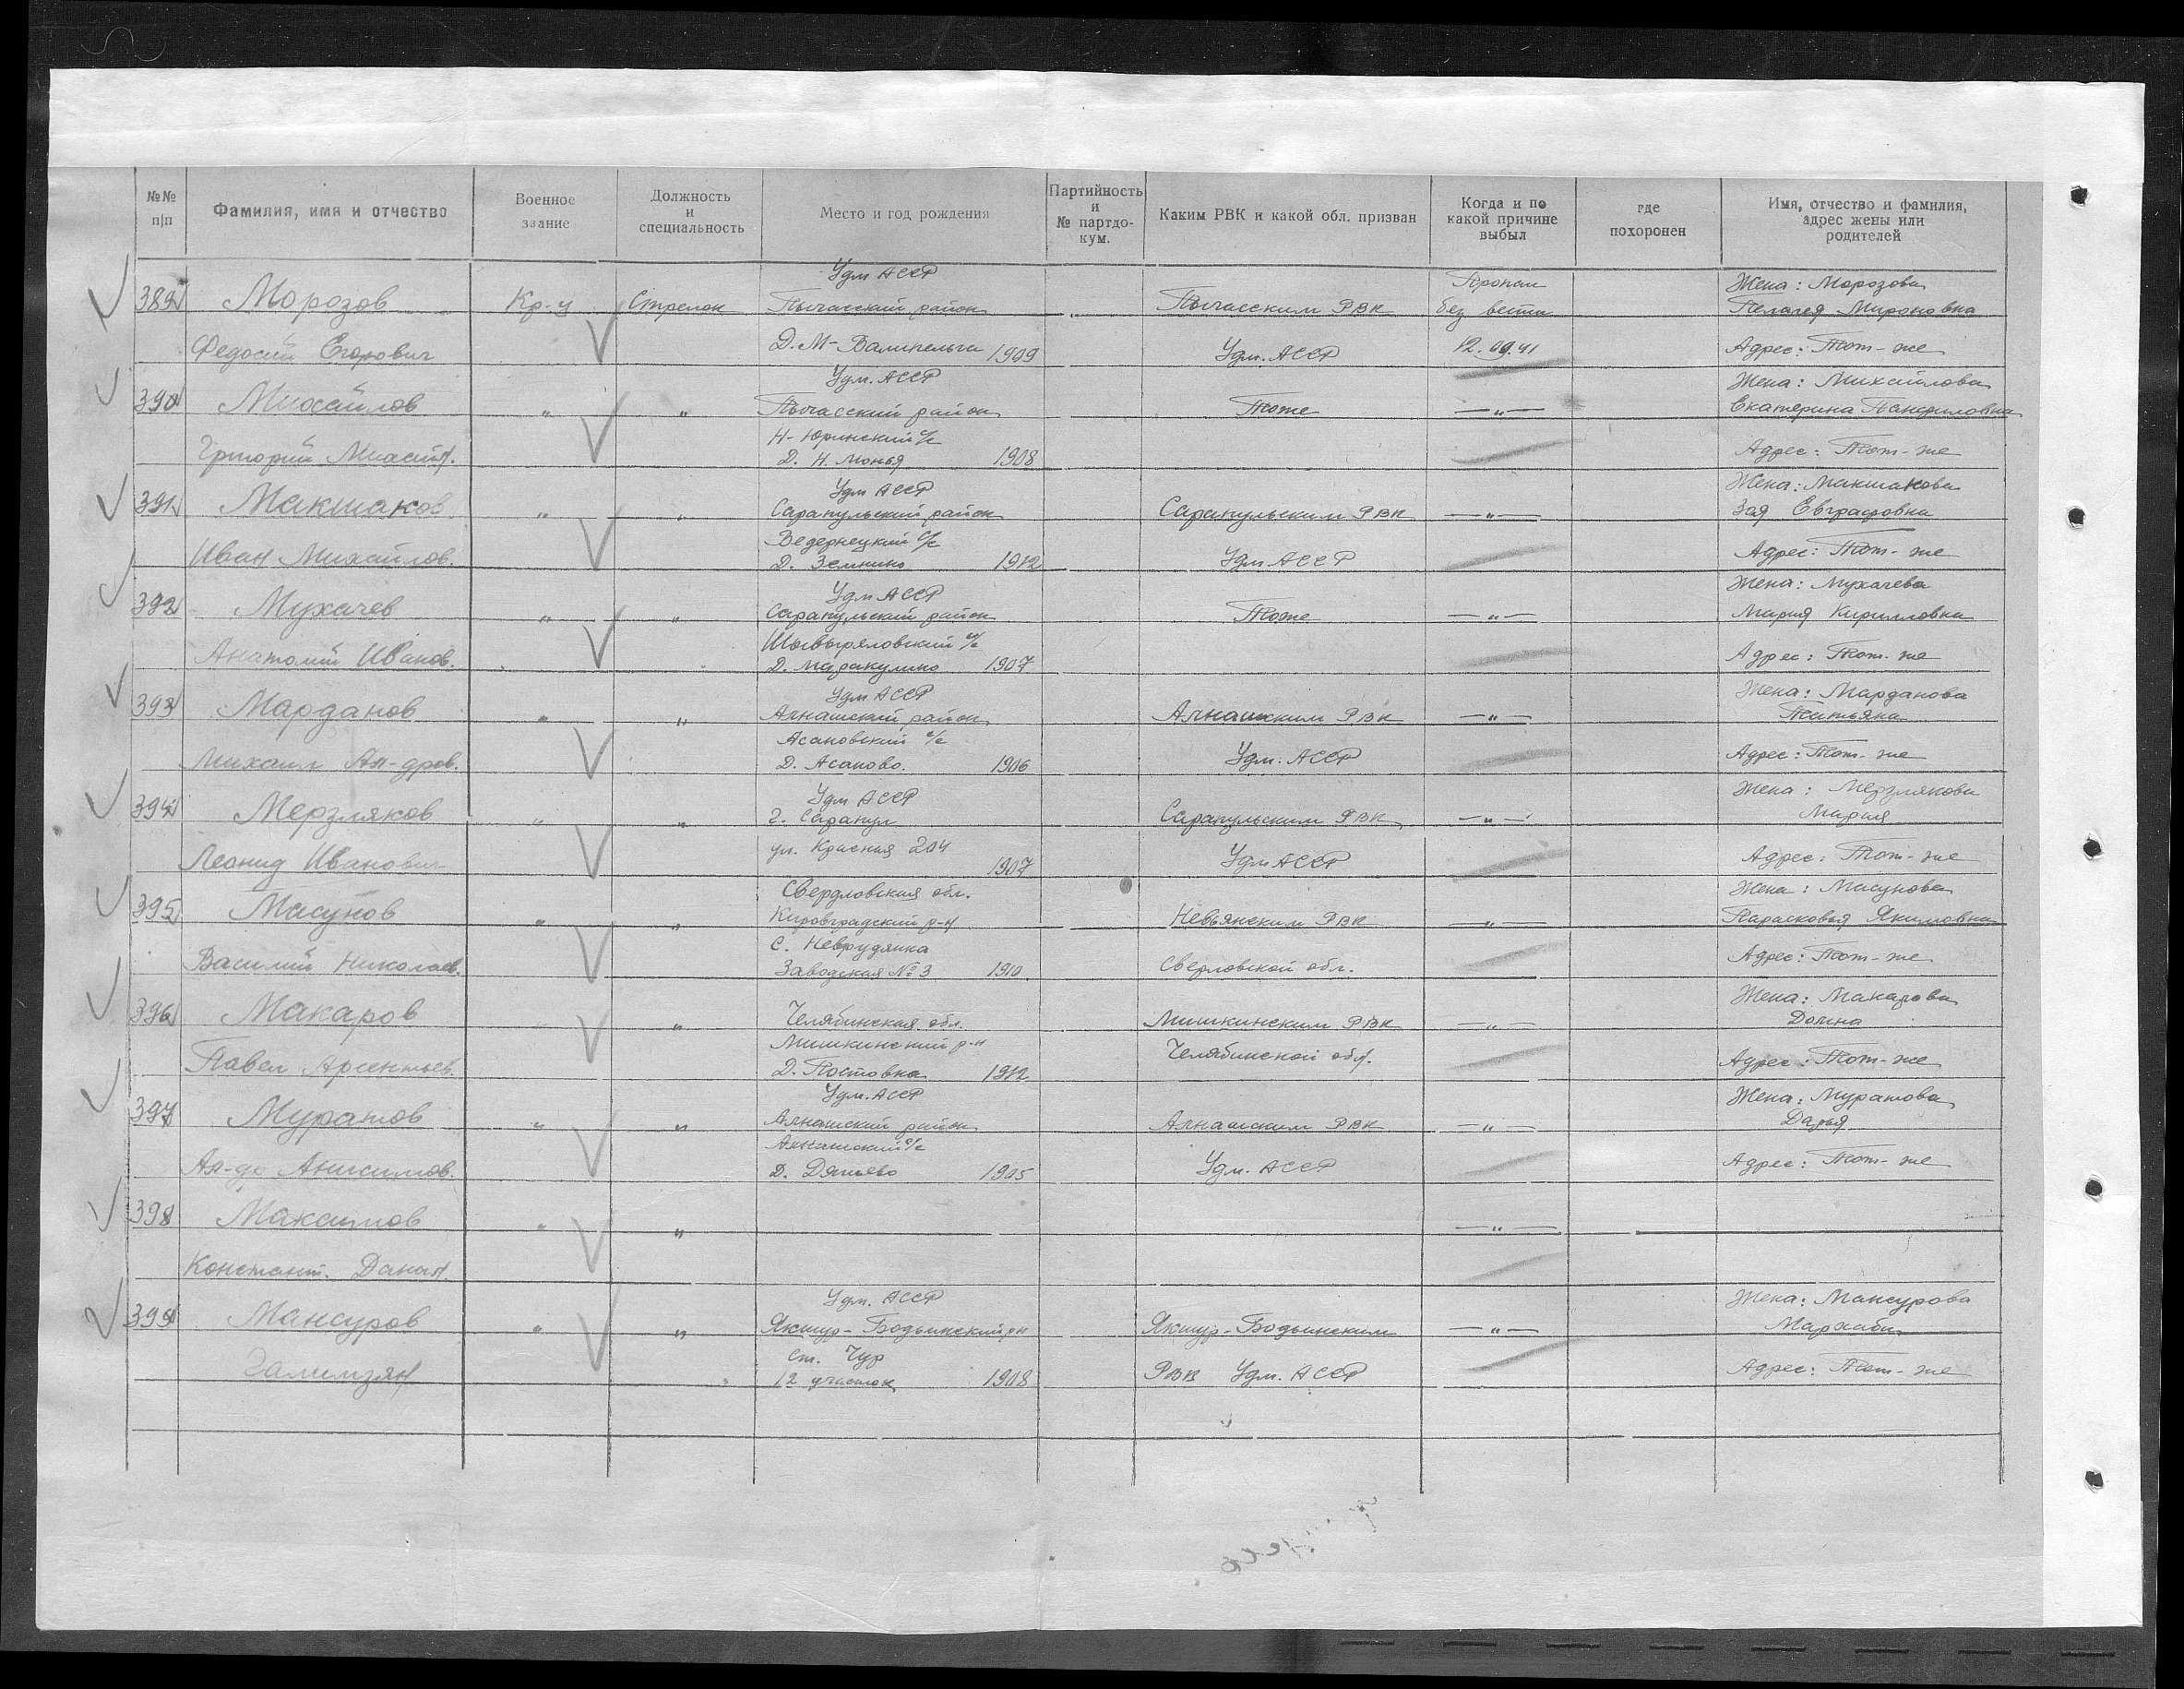 №№ п/п
Фамилия, имя и отчество
Военное звание
Должность и специальность
Место и год рождения
Партийность и № партдо-кум.
Каким РВК и какой обл. призван
Когда и по какой причине выбыл
где похоронен
Имя, отчество и фамилия, адрес жены или родителей
Удм АССР Пропал Жена: Морозова
389 Морозов Кр-ц Стрелок Пычасский район Пычасским РВК без вести Пелагея Мироновна
Федосий Егорович Д. М-Валипельга 1909 Удм. АССР 12.09.41 Адрес: Тот-же
Удм. АССР Жена: Михайлова
390 Михайлов " " Пычасский район Тоже —"— Екатерина Панфиловна
Н-Юринский с/с
Григорий Михайл. Д. Н. Монья 1908 Адрес: Тот-же
Удм АССР Жена: Макшакова
391 Макшаков " " Сарапульский район Сарапульским РВК —"— Зоя Евграфовна
Ведернецкий с/с
Иван Михайлов. Д. Земнино 1912 Удм АССР Адрес: Тот-же
Удм АССР Жена: Мухачева
392 Мухачев " " Сарапульский район Тоже —"— Мария Кирилловна
с/с
Анатолий Иванов. Д. Маракулино 1907 Адрес: Тот-же
Удм АССР Жена: Марданова
393 Марданов " " Алнашский район Алнашским РВК —"— Татьяна
Асановский с/с
Михаил Ал-дров. Д. Асаново. 1906 Удм. АССР Адрес: Тот-же
Удм АССР Жена: Мерзлякова
394 Мерзляков " " г. Сарапул Сарапульским РВК —"— Мария
ул. Красная 204
Леонид Иванович 1907 Удм АССР Адрес: Тот-же
Свердловская обл. Жена: Масунова
395 Масунов " " Кировградский р-н Невьянским РВК —"— Парасковья Якимовна
С. Неврудянка
Василий Николаев. Заводская №3 1910 Сверловской обл. Адрес: Тот-же
Жена: Макарова
396 Макаров " " Челябинская обл. Мишкинским РВК —"— Домна
Мишкинский р-н
Павел Арсентьев. Д. Постовка 1912 Челябинской обл. Адрес: Тот-же
Удм. АССР Жена: Муратова
397 Муратов " " Алнашский район Алнашским РВК —"— Дарья
Алнашский с/с
Ал-др Анисимов. Д. Дятлево 1905 Удм. АССР Адрес: Тот-же
398 Максимов " " —"—
Констант. Данил.
Удм. АССР Жена: Мансурова
399 Мансуров " " Якшур-Бодьинский рн Якшур-Бодьинским —"— Мархаби
ст. Чур
Галимзян 12 участок 1908 РВК Удм. АССР Адрес: Тот-же